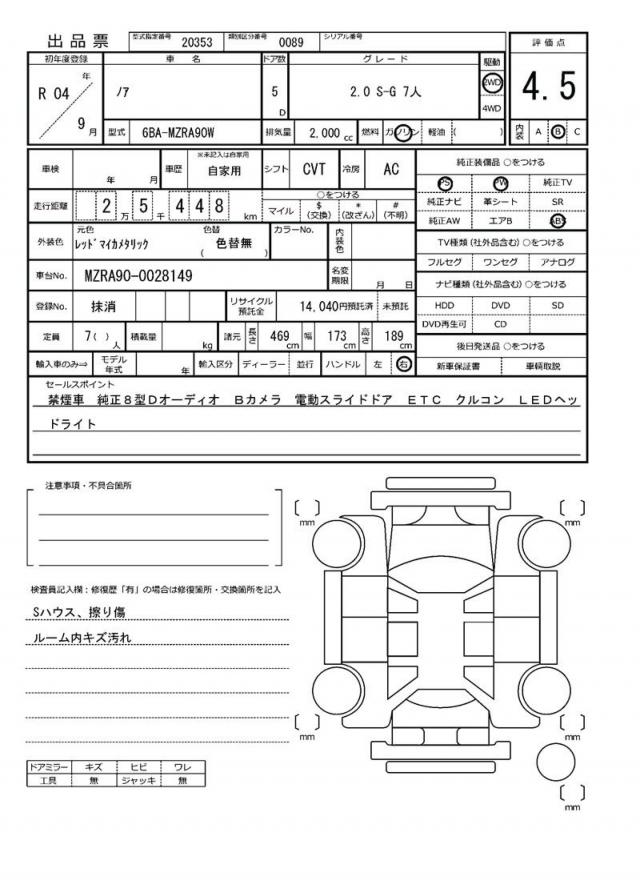 出品票
型式指定番号 20353 類別区分番号 0089 シリアル番号
評価点
4.5
内装 A B C
初年度登録 車名 ドア数 グレード 駆動
R 04 年 9 月
ノア
5 D
2.0 S-G 7人
2WD
4WD
型式 6BA-MZRA90W 排気量 2,000 cc 燃料 ガソリン 軽油 ( )
車検 年 月 車歴 ※未記入は自家用 自家用 シフト CVT 冷房 AC
走行距離 2 万 5 千 4 4 8 km
○をつける
マイル $(交換) *(改ざん) #(不明)
外装色 元色 レッドマイカメタリック 色替 ( 色替無 ) カラーNo. 内装色
車台No. MZRA90-0028149 名変期限 月 日
登録No. 抹消 リサイクル預託金 14,040円預託済 未預託
定員 7( )人 積載量 kg 諸元 長さ 469 cm 幅 173 cm 高さ 189 cm
輸入車のみ⇒ モデル年式 年 輸入区分 ディーラー 並行 ハンドル 左 右
純正装備品 ○をつける
PS PW 純正TV
純正ナビ 革シート SR
純正AW エアB ABS
TV種類(社外品含む)○をつける
フルセグ ワンセグ アナログ
ナビ種類(社外品含む)○をつける
HDD DVD SD
DVD再生可 CD
後日発送品 ○をつける
新車保証書 車輌取説
セールスポイント
禁煙車 純正8型Dオーディオ Bカメラ 電動スライドドア ETC クルコン LEDヘッ
ドライト
注意事項・不具合箇所
検査員記入欄：修復歴「有」の場合は修復箇所・交換箇所を記入
Sハウス、擦り傷
ルーム内キズ汚れ
ドアミラー キズ ヒビ ワレ
工具 無 ジャッキ 無
[ ] mm
[ ] mm
[ ] mm
[ ] mm
[ ] mm